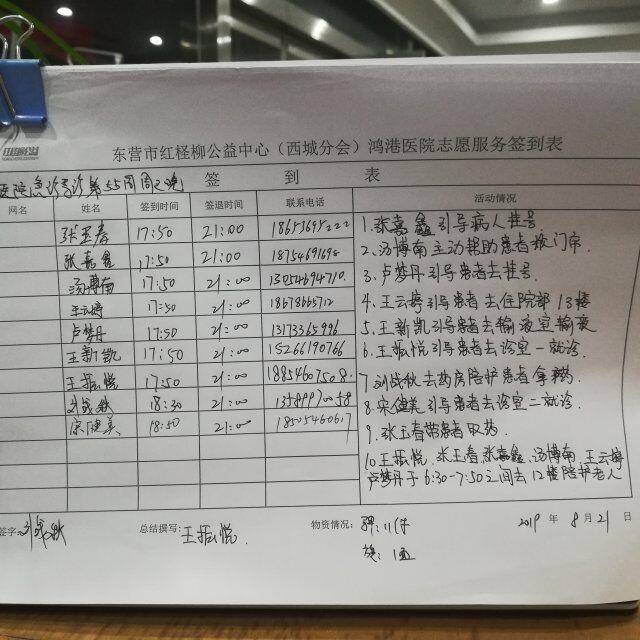 东营市红柽柳公益中心（西城分会）鸿港医院志愿服务签到表
医院急诊导诊第55周周之晚 签 到 表
网名 姓名 签到时间 签退时间 联系电话 活动情况
张玉春 17:50 21:00
张嘉鑫 17:50 21:00 18754691698
汤博南 17:50 21:00 13054694710
王云婷 17:50 21:00
卢梦丹 17:50 21:00 13173365996
王新凯 17:50 21:00 15266190766
王振悦 17:50 21:00 18854607508
刘战钦 18:30 21:00
宋健美 18:50 21:00 18505460617
1.张嘉鑫引导病人挂号
2.汤博南主动帮助患者按门帘.
3.卢梦丹引导患者去挂号
4.王云婷引导患者去住院部13楼
5.王新凯引导患者去输液室输液
6.王振悦引导患者去诊室一就诊
7.刘战钦去药房陪护患者拿药
8.宋健美引导患者去诊室二就诊.
9.张玉春带患者取药.
10.王振悦.张玉春.张嘉鑫.汤博南.王云婷
卢梦丹于6:30-7:50之间去12楼陪护老人
签字: 刘战钦 总结撰写: 王振悦. 物资情况: 2019 年 8 月 21 日